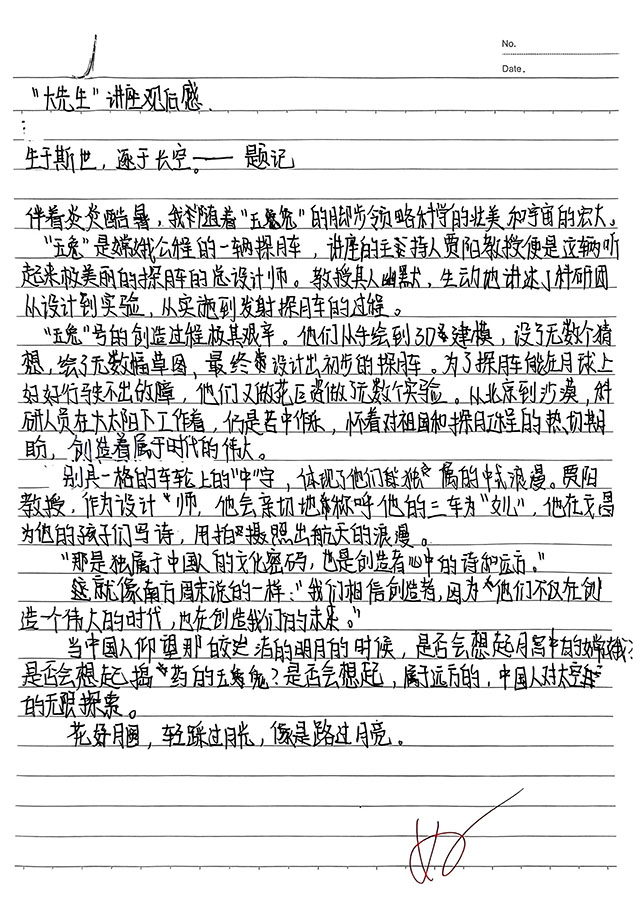 No.
Date.
"大先生"讲座观后感.
生于斯世,逐于长空。——题记
伴着炎炎酷暑,我们随着"玉兔兔"的脚步领略科学的壮美和宇宙的宏大。
"玉兔"是嫦娥公程的一辆探月车,讲座的主持人贾阳教授便是这辆听
起来极美丽的探月车的总设计师。教授其人幽默,生动地讲述了科研团
从设计到实验,从实施到发射探月车的过程。
"玉兔"号的创造过程极其艰辛。他们从手绘到3D建模,设了无数个猜
想,绘了无数幅草图,最终设计出初步的探月车。为了探月车能在月球上
好好行驶不出故障,他们又做了无数个实验。从北京到沙漠,科
研人员在大太阳下工作着,仍是苦中作乐,怀着对祖国和探月工程的热切期
盼,创造着属于时代的伟大。
别具一格的车轮上的"中"字,体现了他们独属的中式浪漫。贾阳
教授,作为设计师,他会亲切地称呼他的三车为"女儿",他在文昌
为他的孩子们写诗,用拍摄照出航天的浪漫。
"那是独属于中国人的文化密码,也是创造者心中的诗和远方。"
这就像南方周末说的一样:"我们相信创造者,因为他们不仅在创
造一个伟大的时代,也在创造我们的未来。"
当中国人仰望那皎洁的明月的时候,是否会想起月宫中的嫦娥?
是否会想起捣药的玉兔?是否会想起,属于远方的,中国人对太空
的无限探索。
花好月圆,轻踩过月光,像是路过月亮。